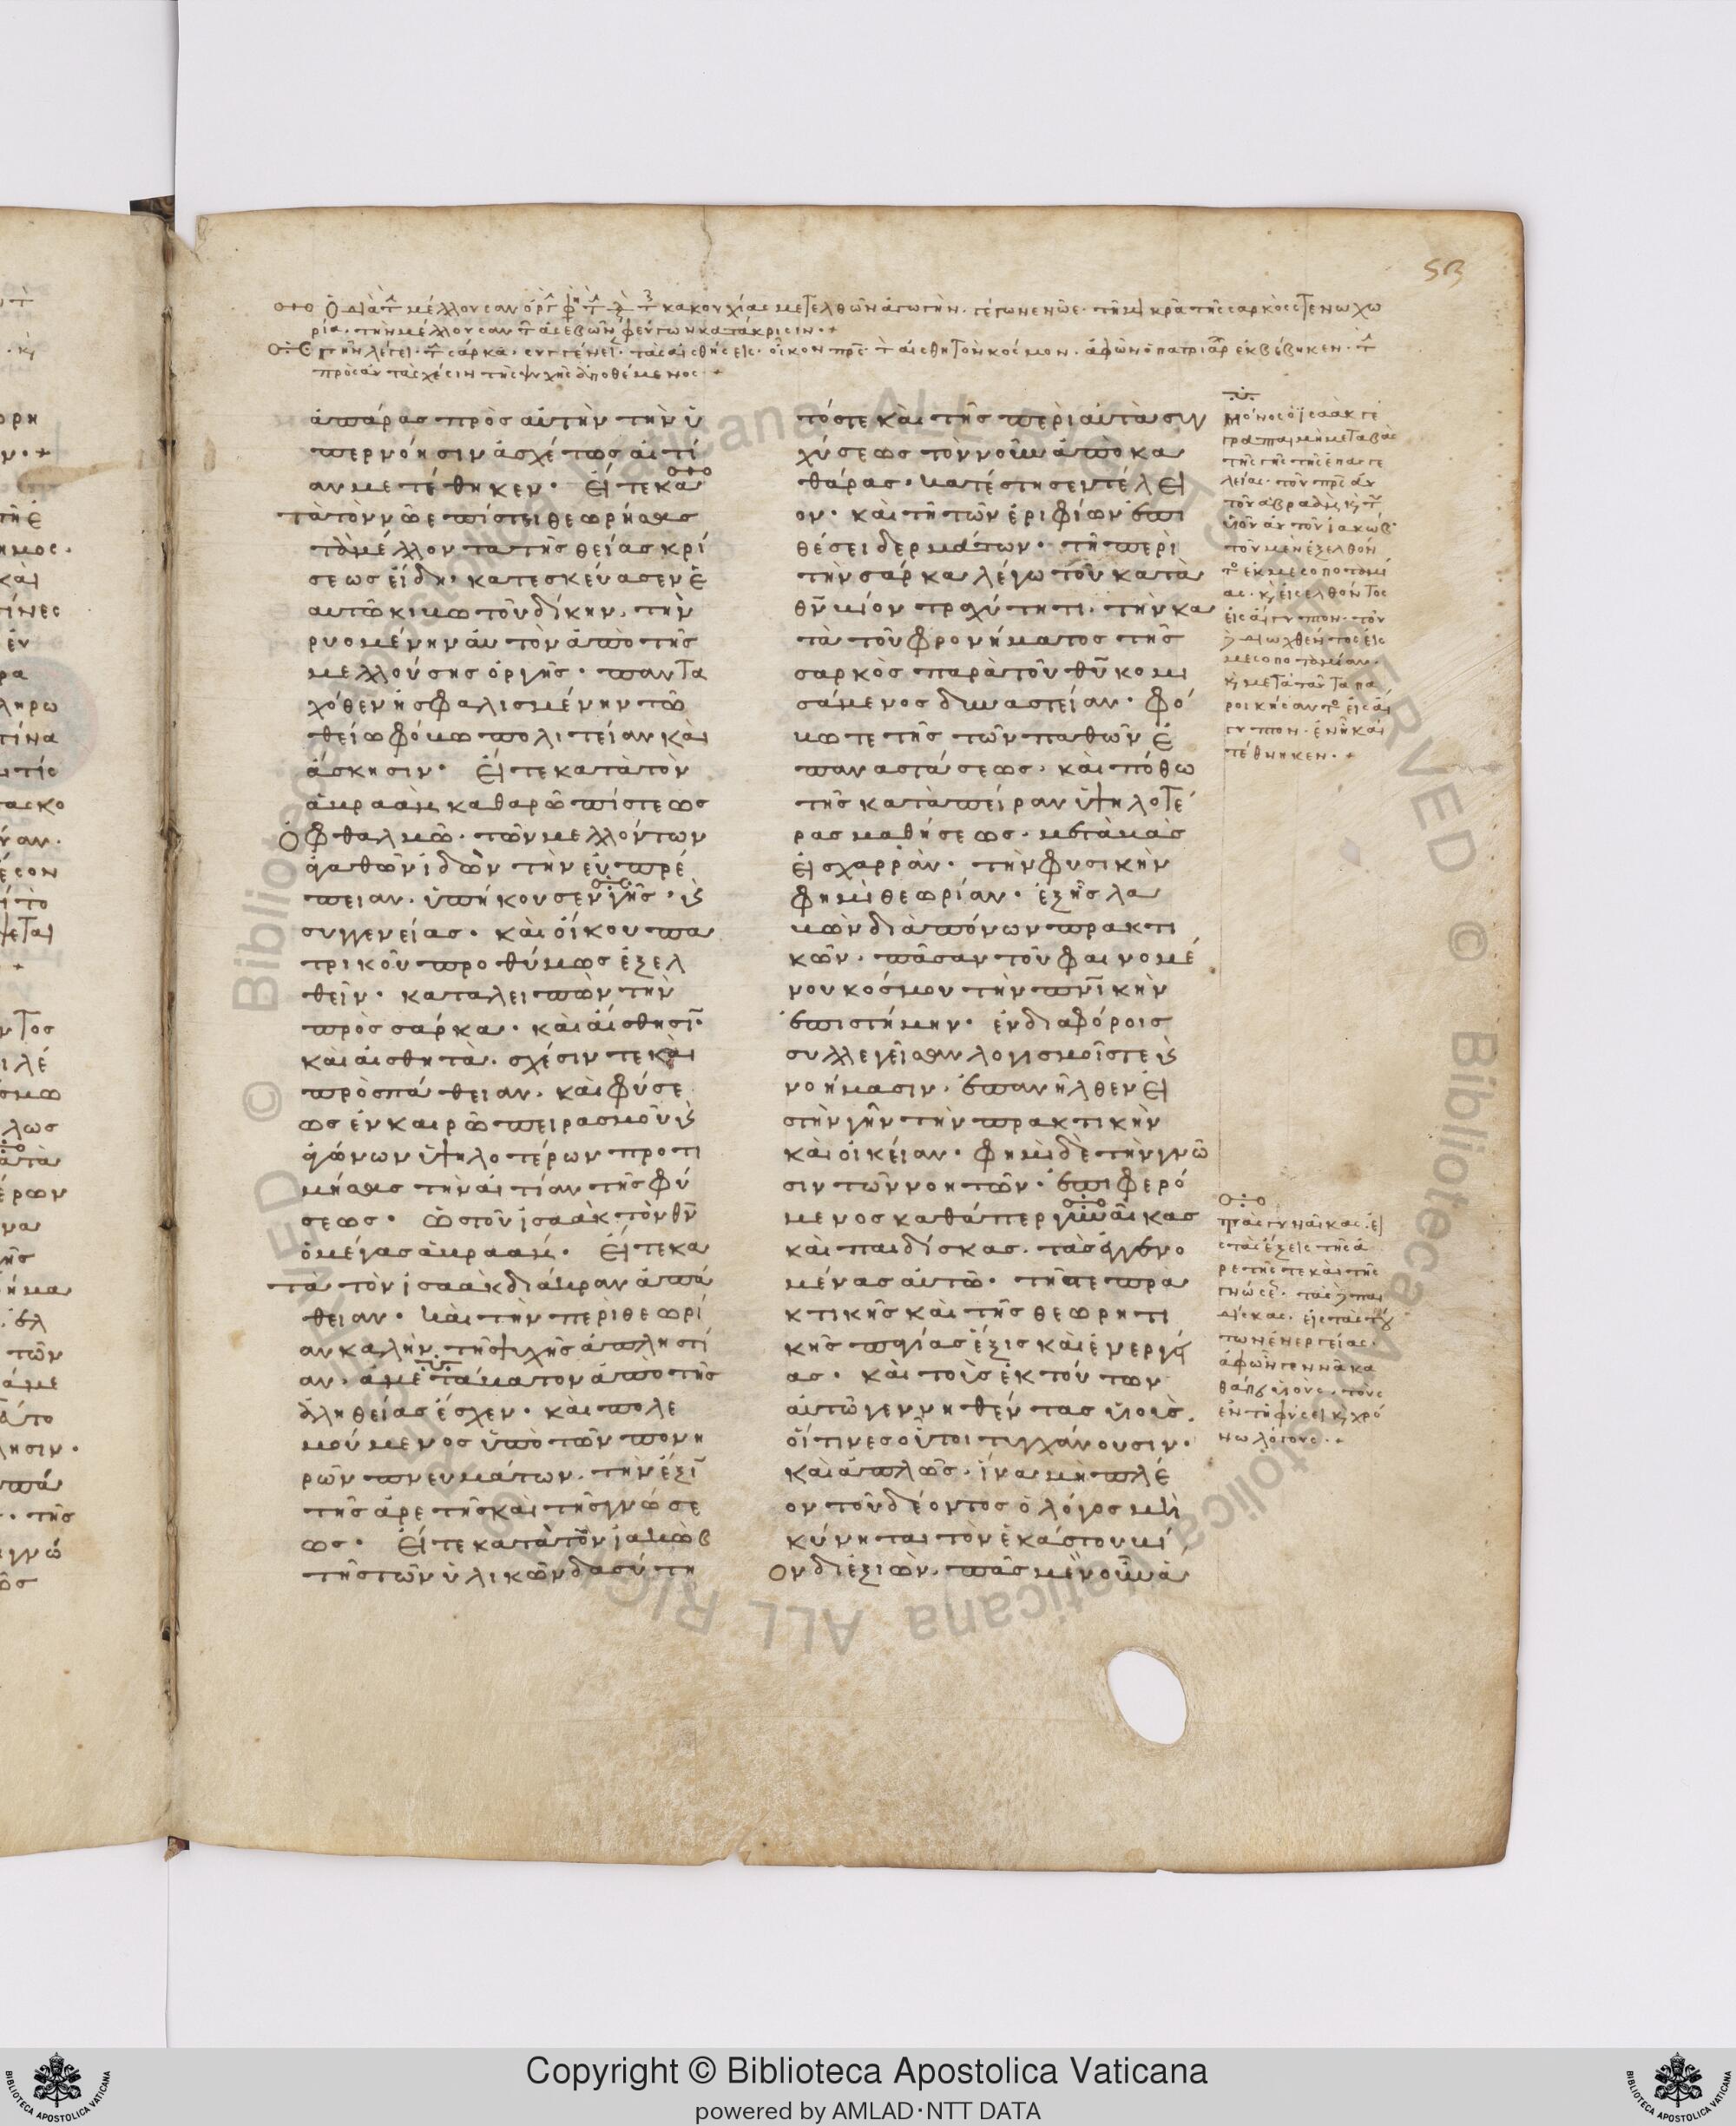 53
Ὁ διὰ τ μέλλουσαν ὀργ κακουχίας μετελθὼν ἀγωγὴν. γέγονε νῶε. τῆ μικρᾶ τῆς σαρκὸς στενοχω
ρία. τὴν μέλλουσαν τ ἀσεβῶν φεύγων κατάκρισιν.+
γῆν λέγει. τ σάρκα. συγγένει. τὰς αἰσθήσεις. οἶκον πρς. τ αἰσθητὸν κόσμον. ἀφ' ὧν ὁ πατριάρ ἐκβέβηκεν. τ
πρὸς αὐτὰ σχέσιν τῆς ψυχῆς ἀποθέμενος.+
ἀπάρας πρὸς αὐτὴν τὴν ὑ
περνόησιν ἀσχέτως αἰτί
αν μετέθηκεν. Εἴτε κα
τὰ τὸν νῶε πίστει θεωρήσας
τὰ μέλλοντα τῆς θείας κρί
σεως εἴδη. κατεσκεύασεν ἑ
αυτῶ κιβωτοῦ δίκην. τὴν
ρυομένην αὐτὸν ἀπὸ τῆς
μελλούσης ὀργῆς. παντα
χόθεν ἠσφαλισμένην τῶ
θείω φόβω πολιτείαν καὶ
ἄσκησιν. Εἴτε κατὰ τὸν
ἀβραὰμ καθαρῶ πίστεως
ὀφθαλμῶ. τῶν μελλόντων
ἀγαθῶν ἰδὼν τὴν εὐπρέ
πειαν. ὑπήκουσεν γῆς. κ
συγγενείας. καὶ οἴκου πα
τρικοῦ προθύμως ἐξελ
θεῖν. καταλειπὼν τὴν
πρὸς σάρκα. καὶ αἴσθησι.
καὶ αἰσθητὰ. σχέσιν τε καὶ
πρὸσπάθειαν. καὶ φύσε
ως ἐν καιρῶ πειρασμοῦ κ
ἀγώνων ὑψηλοτέρων προτι
μήσας τὴν αἰτίαν τῆς φύ
σεως. ὡς τοῦ ἰσαὰκ τὸν θν
ὁ μέγας ἀβραάμ. Εἴτε κα
τὰ τὸν ἰσαὰκ δι' ἄκραν ἀπά
θειαν. καὶ τὴν περὶ θεωρί
αν καλὴν τῆς ψυχῆς ἀπληστί
αν. ἀμετάβατον ἀπὸ τῆς
ἀληθείας ἔσχεν. καὶ πολε
μούμενος ὑπὸ τῶν πονη
ρῶν πνευμάτων. τὴν ἕξι
τῆς ἀρετῆς καὶ τῆς γνώσε
ως. Εἴτε κατὰ τὸν ἰακὼβ
τῆς τῶν ὑλικῶν δασύτη
τόστε καὶ τῆς περὶ αὐτὰ συγ
χύσεως τὸν νοῦν ἀποκα
θάρας. κατέστησεν τέλει
ον. καὶ τῆ τῶν ἐριφίων ἐπι
θέσει δερμάτων. τῆ περὶ
τὴν σάρκα λέγω τοῦ κατὰ
θν βίου τραχύτητι. τὴν κα
τὰ τοῦ φρονήματος τῆς
σαρκὸς παρὰ τοῦ θυ κομι
σάμενος δυναστείαν. φό
βω τε τῆς τῶν παθῶν ἐ
παναστάσεως. καὶ πόθω
τῆς κατὰ πεῖραν ὑψηλοτέ
ρας μαθήσεως. μεταβὰς
εἰς χαρρὰν. τὴν φυσικὴν
φημὶ θεωρίαν. ἐξ ἧς λα
βὼν διὰ πόνων πρακτι
κῶν. πᾶσαν τοῦ φαινομέ
νου κόσμου τὴν πνικὴν
ἐπιστήμην. ἐν διαφόροις
συλλεγεῖσαν λογισμοῖς τε κ
νοήμασιν. ἐπανῆλθεν εἰ
ς τὴν γῆν τὴν πρακτικὴν
καὶ οἰκείαν. φημὶ δὲ τὴν γνῶ
σιν τῶν νοητῶν. ἐπιφερό
μενος καθάπερ γυναῖκας
καὶ παιδίσκας. τὰς γενο
μένας αὐτῶ. τῆς τε πρα
κτικῆς καὶ τῆς θεωρητι
κῆς παγίας ἕξις καὶ ἐνεργεί
ας. καὶ τοὺς ἐκ τούτων
αὐτῶ γεννηθέντας υἱοὺς.
οἵτινες οὗτοι τυγχάνουσιν.
καὶ ἁπλῶς. ἵνα μὴ πλέ
ον τοῦ δέοντος ὁ λόγος μη
κύνηται τὸν ἑκάστου βί
ον διεξιὼν. πᾶς μὲν οὖν ἀ
Μόνος ὁ ἰσαὰκ γέ
γραπται μὴ μεταβὰς
τῆς γῆς τῆς ἐπαγγε
λείας. τοῦ πρς αὐ
τοῦ ἀβραὰμ, κ τ
υἱοῦ αὐτοῦ ἰακώβ.
τοῦ μὲν ἐξελθόν
τος ἐκ μεσοποταμί
ας. κ εἰσελθόντος
εἰς αἴγυπτον. τοῦ
δὲ διωχθέντος εἰς
μεσοποταμίαν.
κ μετὰ ταῦτα πα
ροικήσαντος εἰς αἴ
γυπτον. ἐν ἧ καὶ
τέθνηκεν.+
τὰς γυναῖκας. εἰ
ς τὰς ἕξεις τῆς ἀ
ρετῆς τε καὶ τῆς
γνώσε. τὰς δὲ παι
δίσκας. εἰς τὰς τού
των ἐνεργείας.
ἀφ' ὧν γεννᾶ κα
θάπερ υἱοὺς. τοὺς
ἐν τῆ φύσει κ χρό
νω λόγους.+
Copyright © Biblioteca Apostolica Vaticana
powered by AMLAD·NTT DATA
BIBLIOTECA APOSTOLICA VATICANA
BIBLIOTECA APOSTOLICA VATICANA